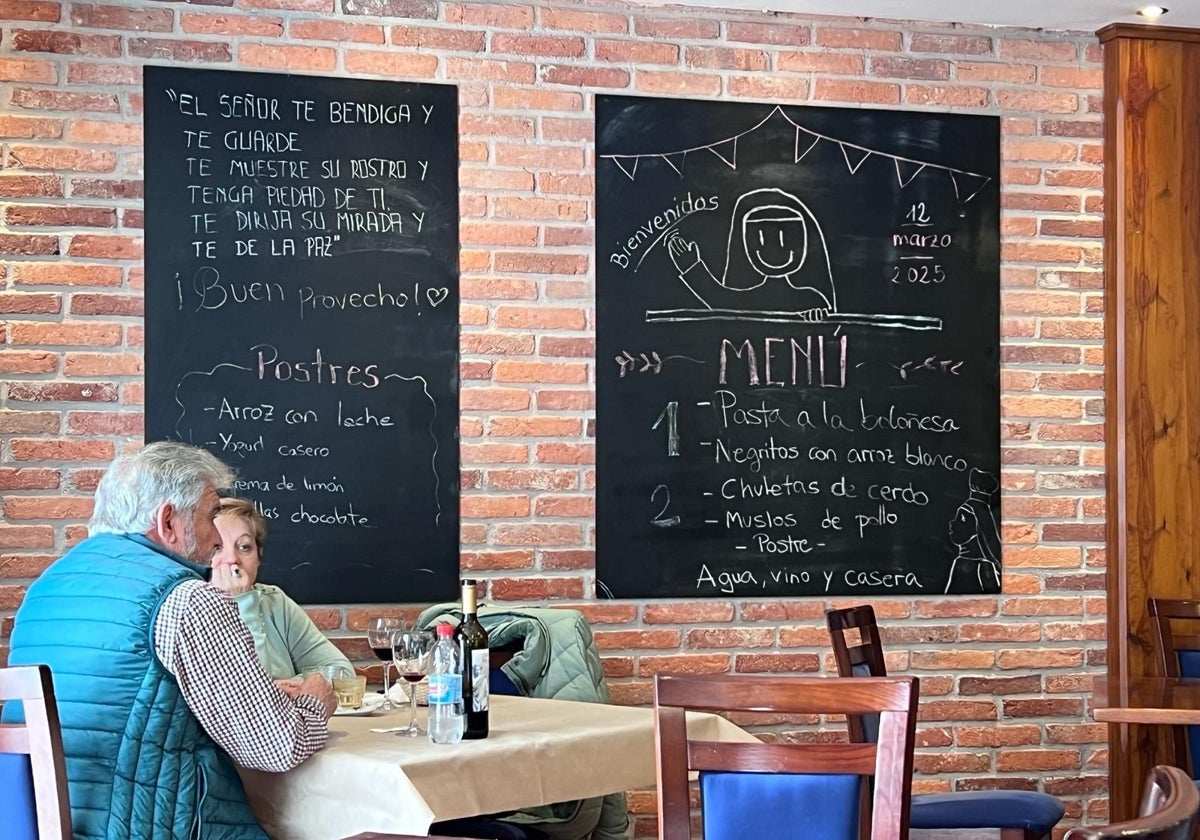 "EL SEÑOR TE BENDIGA Y
TE GUARDE
TE MUESTRE SU ROSTRO Y
TENGA PIEDAD DE TI.
TE DIRIJA SU MIRADA Y
TE DE LA PAZ"
¡Buen provecho!
Postres
-Arroz con leche
-Yogurt casero
rema de limón
llas chocolate
Bienvenidos
12
marzo
2025
MENÚ
1 -Pasta a la boloñesa
-Negritos con arroz blanco
2 -Chuletas de cerdo
-Muslos de pollo
-Postre-
Agua, vino y casera